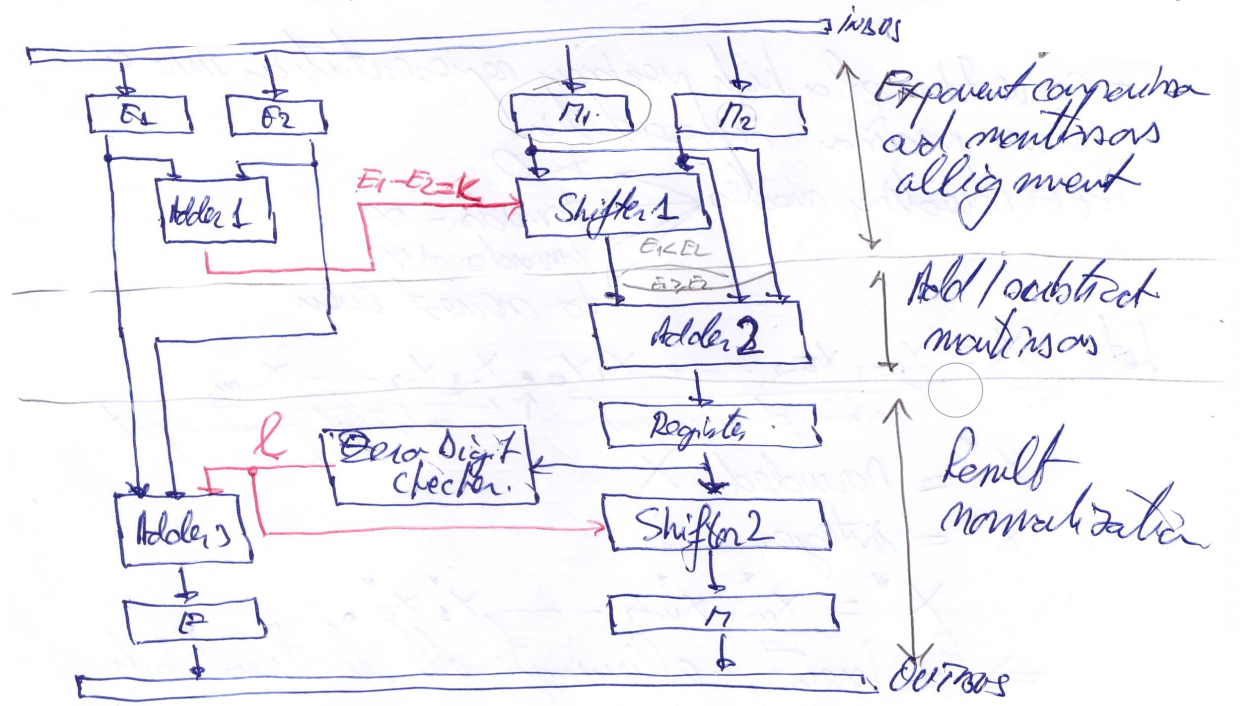 INBUS
E1
E2
M1.
M2
Exponent comparison
ad mantissas
allignment
E1-E2=K
Adder 1
Shifter 1
E1<E2
E1≥E2
Add / substract
mantissas
Adder 2
Register.
l
Zero Digit
checker.
Result
normalization
Adder 3
Shifter 2
E
M
OUTBUS